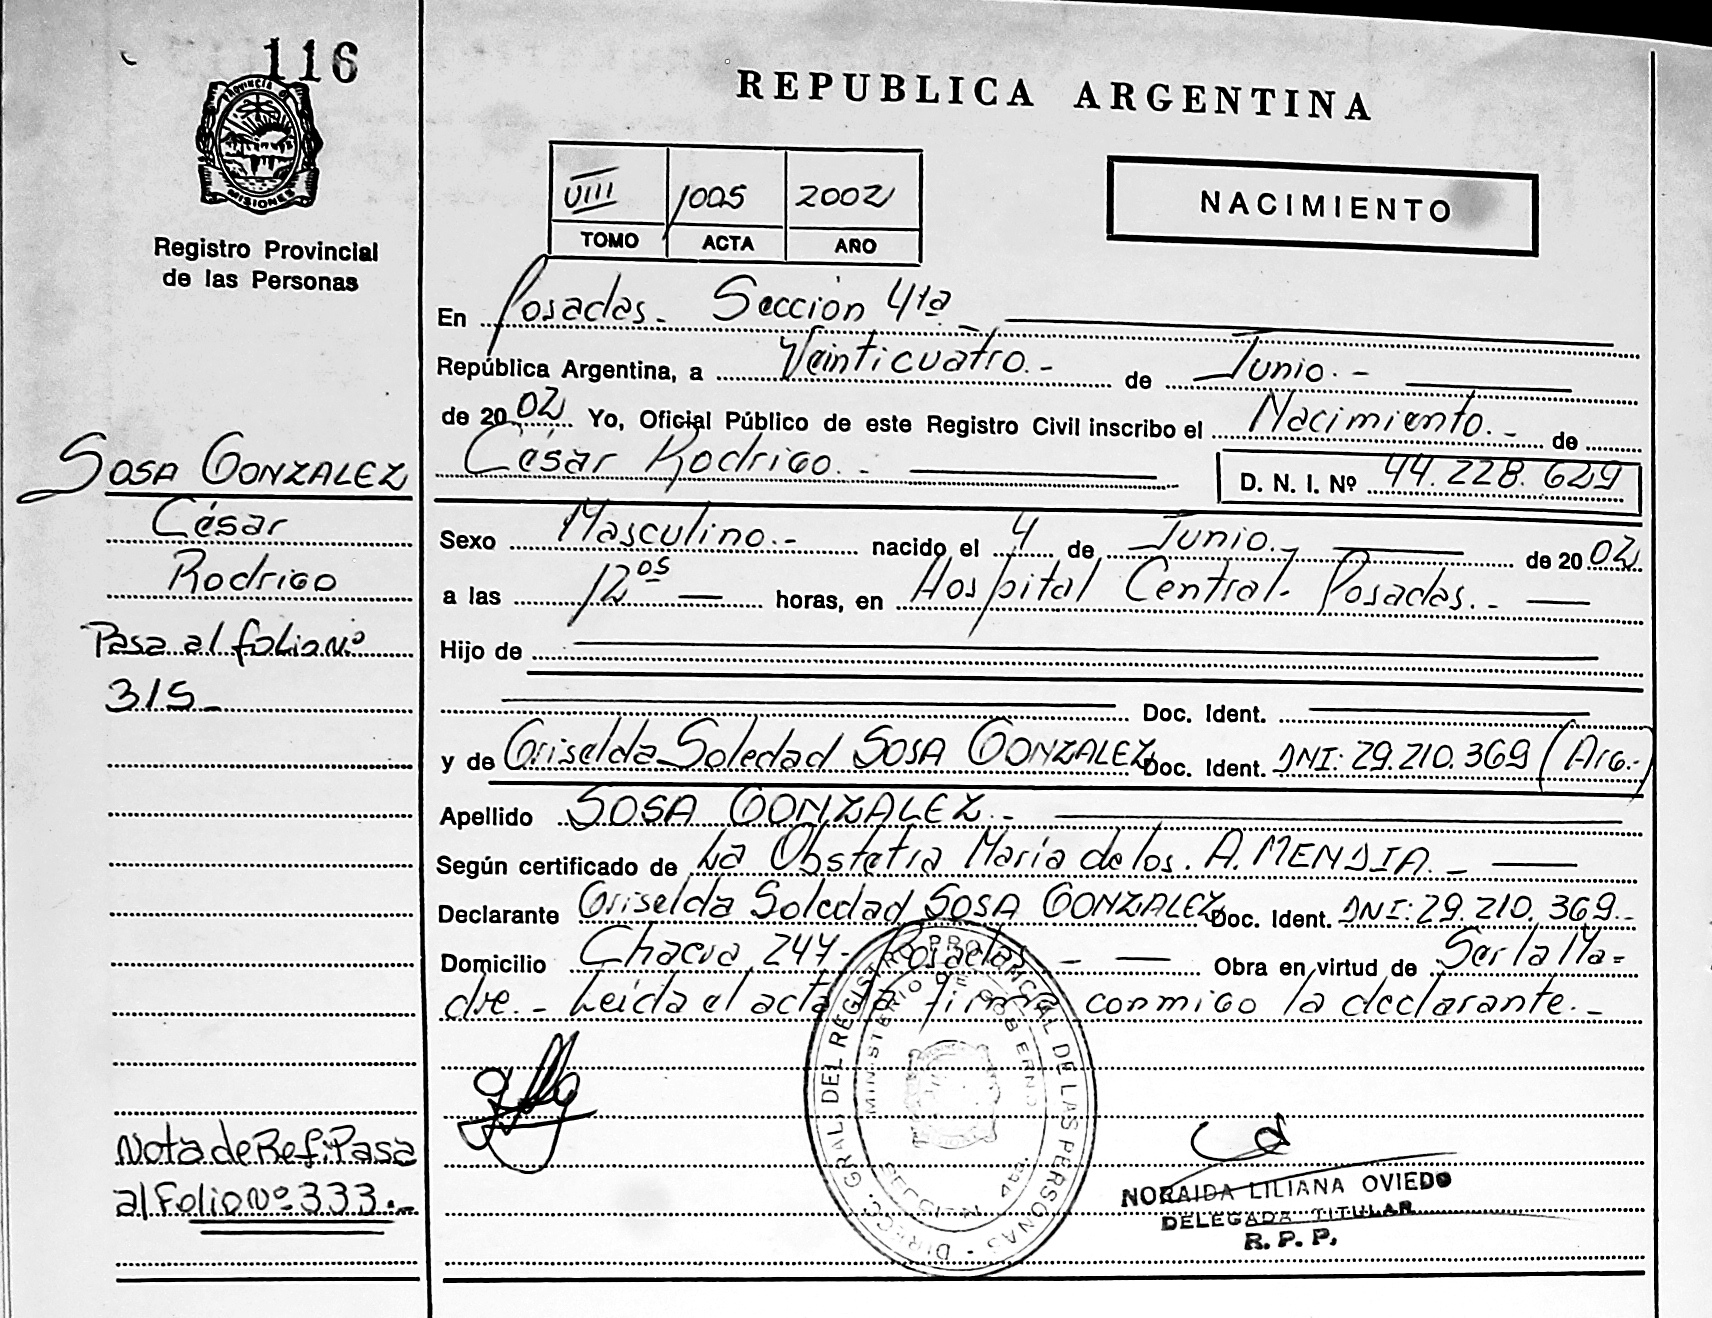 116
PROVINCIA DE
MISIONES
Registro Provincial
de las Personas
SOSA GONZALEZ
César
Rodrigo
Pasa al folio Nº
315_
Nota de Ref: Pasa
al Folio Nº 333.-
REPUBLICA ARGENTINA
VIII 1005 2002
TOMO ACTA AÑO
NACIMIENTO
En Posadas - Sección 4ta
República Argentina, a Veinticuatro.- de Junio.-
de 2002 Yo, Oficial Público de este Registro Civil inscribo el Nacimiento.- de
César Rodrigo.- D. N. I. Nº 44.228.629
Sexo Masculino.- nacido el 4 de Junio.- de 2002
a las 12 05 — horas, en Hospital Central- Posadas.-
Hijo de
Doc. Ident.
y de Griselda Soledad SOSA GONZALEZ Doc. Ident. DNI: 29.210.369 (Arg.-)
Apellido SOSA GONZALEZ.-
Según certificado de La Obstetra María de los A. MENDIA.-
Declarante Griselda Soledad SOSA GONZALEZ Doc. Ident. DNI: 29.210.369.-
Domicilio Chacra 244- Posadas - — Obra en virtud de Ser la Ma=
dre.- Leída el acta la firma conmigo la declarante.-
DIRECC. GRAL. DEL REGISTRO PROVINCIAL DE LAS PERSONAS -
MINISTERIO DE GOBIERNO
NORAIDA LILIANA OVIEDO
DELEGADA TITULAR
R. P. P.